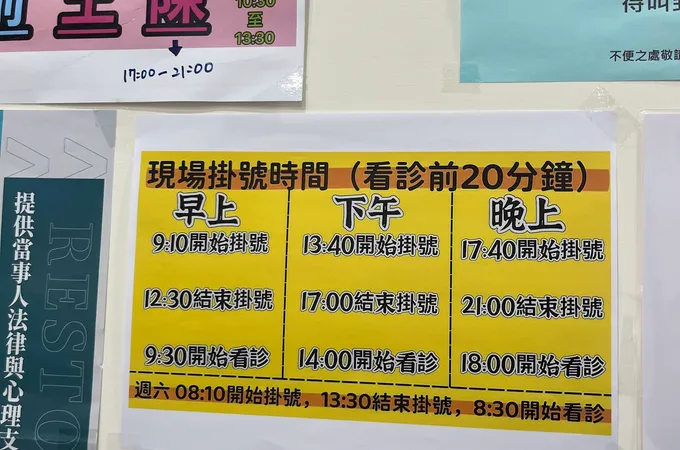 前 王 陳
10:30
至
13:30
17:00-21:00
待叫
不便之處敬請
RESTO
提供當事人法律與心理支
現場掛號時間（看診前20分鐘）
早上
9:10開始掛號
12:30結束掛號
9:30開始看診
下午
13:40開始掛號
17:00結束掛號
14:00開始看診
晚上
17:40開始掛號
21:00結束掛號
18:00開始看診
週六 08:10開始掛號，13:30結束掛號，8:30開始看診